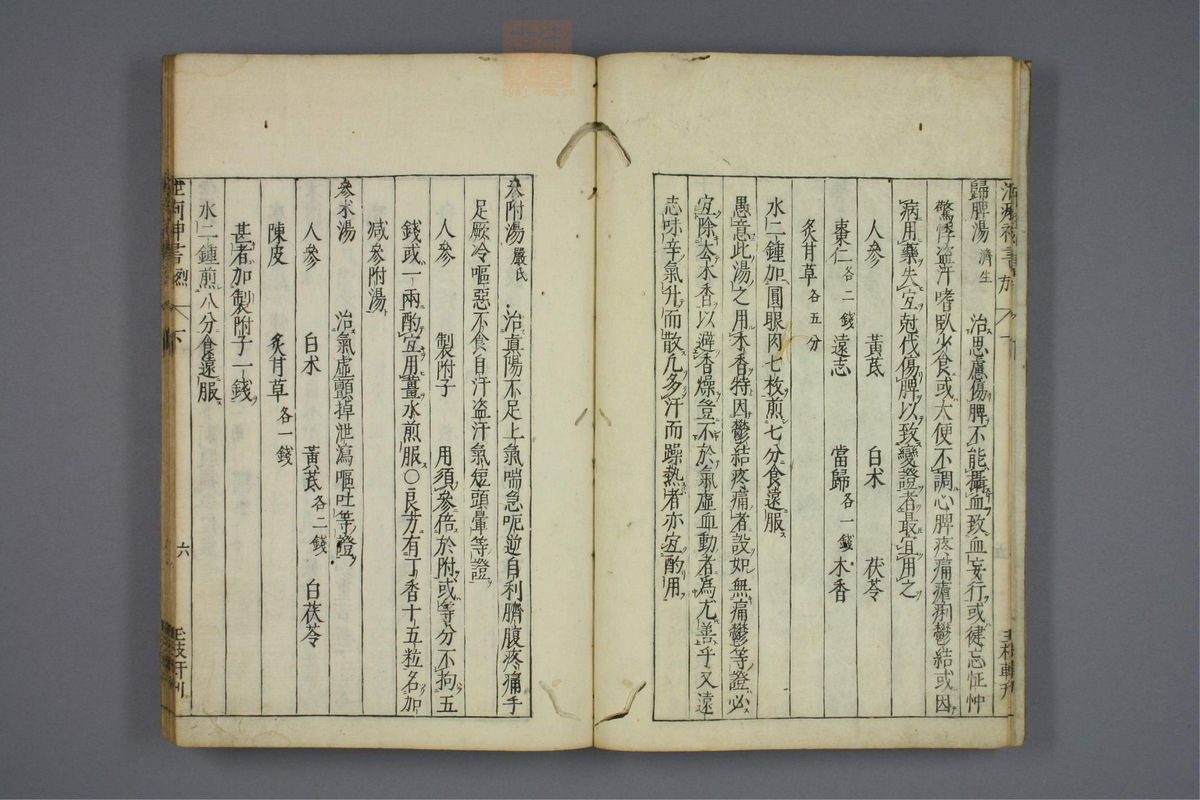 歸脾湯 濟生 治思慮傷脾不能攝血致血妄行或健忘怔忡
驚悸盜汗嗜臥少食或大便不調心脾疼痛瘧痢鬱結或因
病用藥失宜尅伐傷脾以致變證者最宜用之
人參 黃芪 白朮 茯苓
棗仁各二錢 遠志 當歸各一錢 木香
炙甘草各五分
水二鍾加圓眼肉七枚煎七分食遠服
愚意此湯之用木香特因鬱結疼痛者設如無痛鬱等證必
宜除去木香以避香燥豈不於氣虛血動者爲尤善乎又遠
志味辛氣升而散凡多汗而躁熱者亦宜酌用
參附湯 嚴氏 治眞陽不足上氣喘急呃逆自利臍腹疼痛手
足厥冷嘔惡不食自汗盜汗氣短頭暈等證
人參 製附子 用須參倍於附或等分不拘五
錢或一兩酌宜用薑水煎服○良方有丁香十五粒名加
减參附湯
參朮湯 治氣虛顫掉泄瀉嘔吐等證
人參 白朮 黃芪各二錢 白茯苓
陳皮 炙甘草各一錢
甚者加製附子一錢
水二鍾煎八分食遠服
六